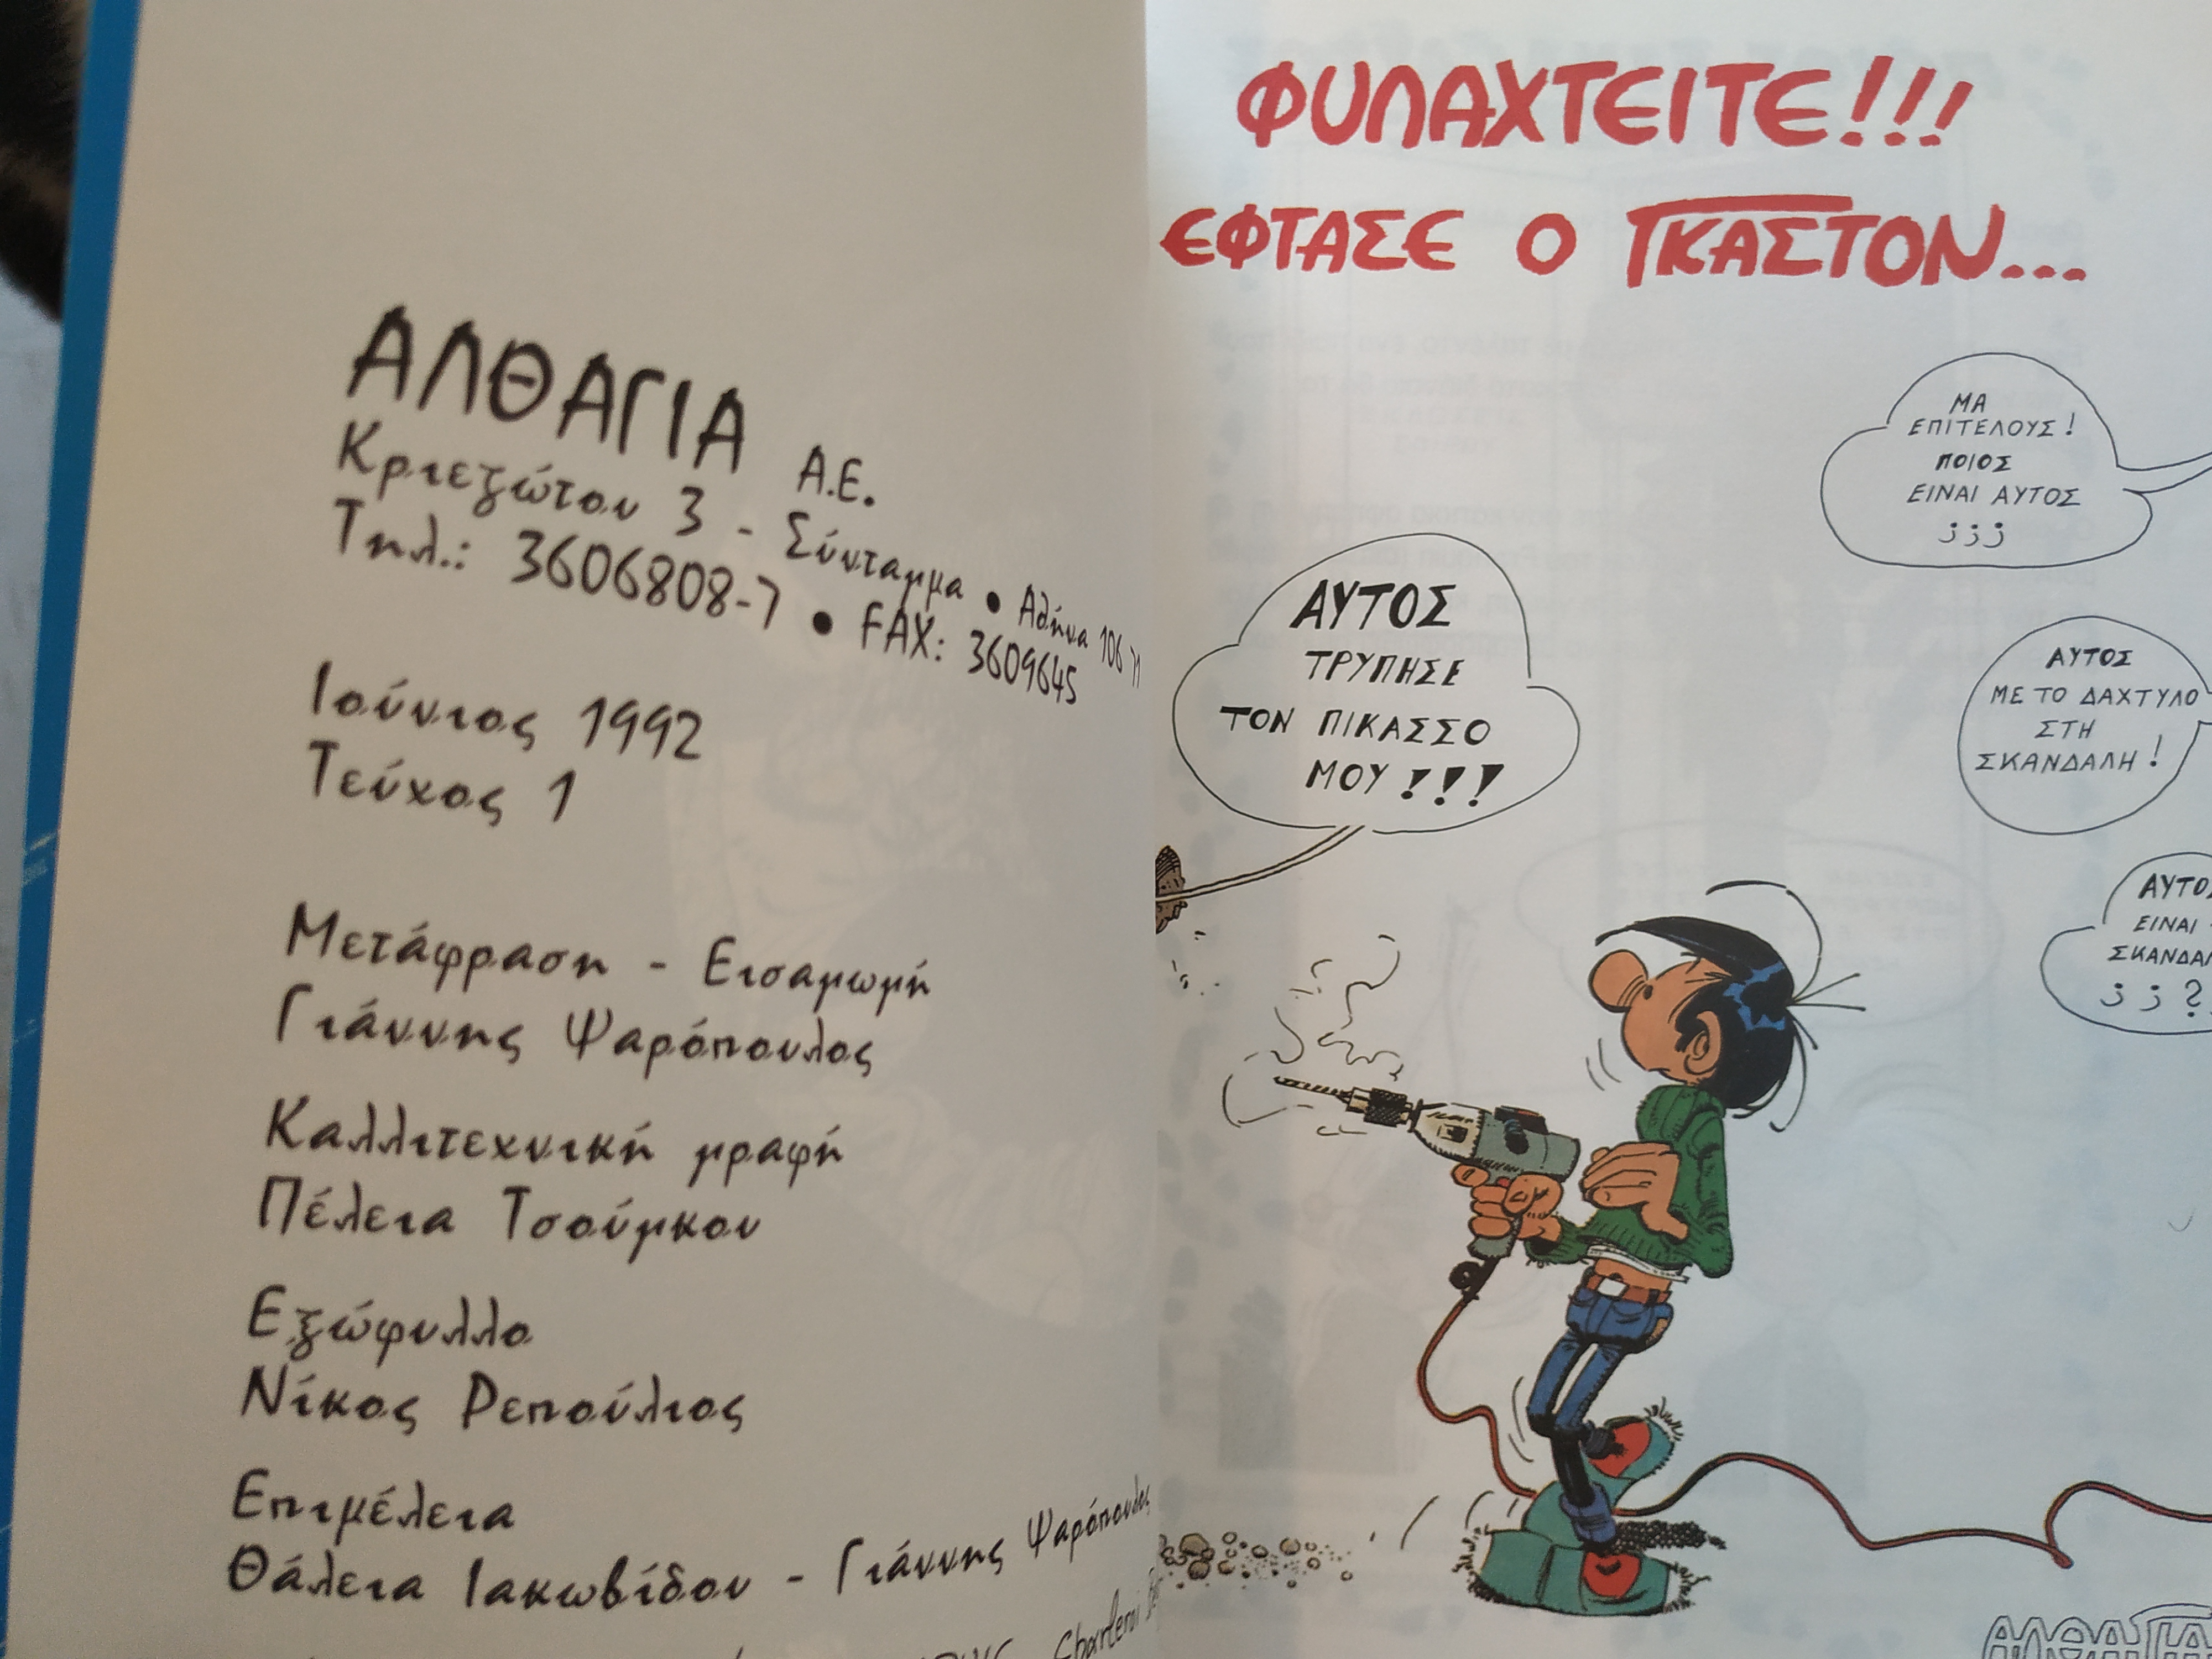 ΑΛΘΑΓΙΑ Α.Ε.
Κριεζώτου 3 - Σύνταγμα • Αθήνα 106 71
Τηλ.: 3606808-7 • FAX: 3609645
Ιούνιος 1992
Τεύχος 1
Μετάφραση - Εισαγωγή
Γιάννης Ψαρόπουλος
Καλλιτεχνική γραφή
Πέλεια Τσούγκου
Εξώφυλλο
Νίκος Ρεπούλιος
Επιμέλεια
Θάλεια Ιακωβίδου - Γιάννης Ψαρόπουλος
Charleroi
ΦΥΛΑΧΤΕΙΤΕ!!!
ΕΦΤΑΣΕ Ο ΓΚΑΣΤΟΝ...
ΜΑ
ΕΠΙΤΕΛΟΥΣ!
ΠΟΙΟΣ
ΕΙΝΑΙ ΑΥΤΟΣ
;;;
ΑΥΤΟΣ
ΤΡΥΠΗΣΕ
ΤΟΝ ΠΙΚΑΣΣΟ
ΜΟΥ!!!
ΑΥΤΟΣ
ΜΕ ΤΟ ΔΑΧΤΥΛΟ
ΣΤΗ
ΣΚΑΝΔΑΛΗ!
ΑΥΤΟΣ
ΕΙΝΑΙ
;;?
ΑΛΘΑΓΙΑ